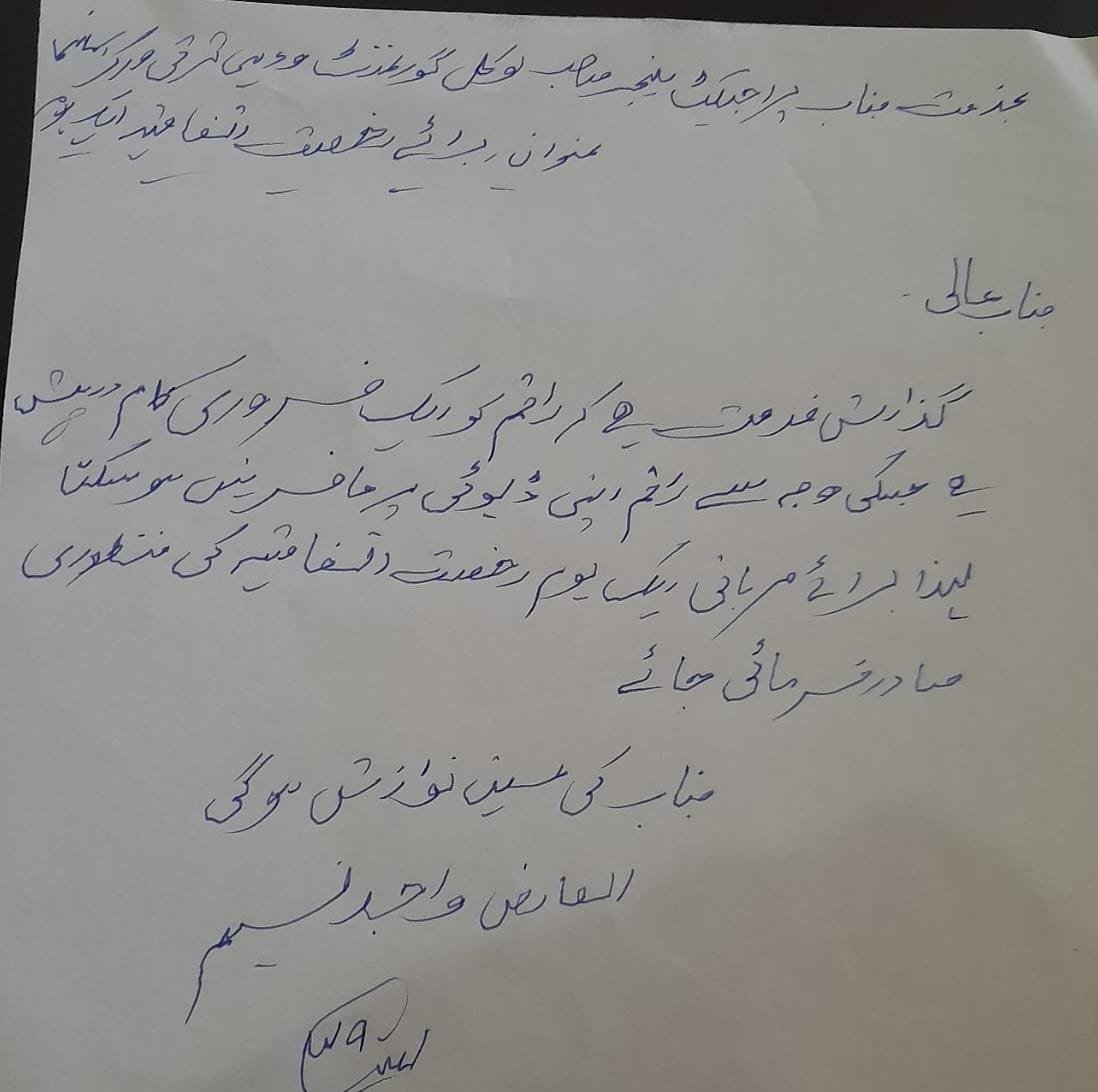 بخدمت جناب پراجیکٹ مینجر صاحب لوکل گورنمنٹ و دیہی ترقی مرکز
عنوان برائے رخصت اتفاقیہ ایک یوم
جناب عالی۔
گذارش خدمت ہے کہ راقم کو ایک ضروری کام درپیش
ہے جسکی وجہ سے راقم اپنی ڈیوٹی پر حاضر نہیں ہو سکتا
لہذا برائے مہربانی ایک یوم رخصت اتفاقیہ کی منظوری
صادر فرمائی جائے
جناب کی عین نوازش ہو گی
العارض واجد نسیم